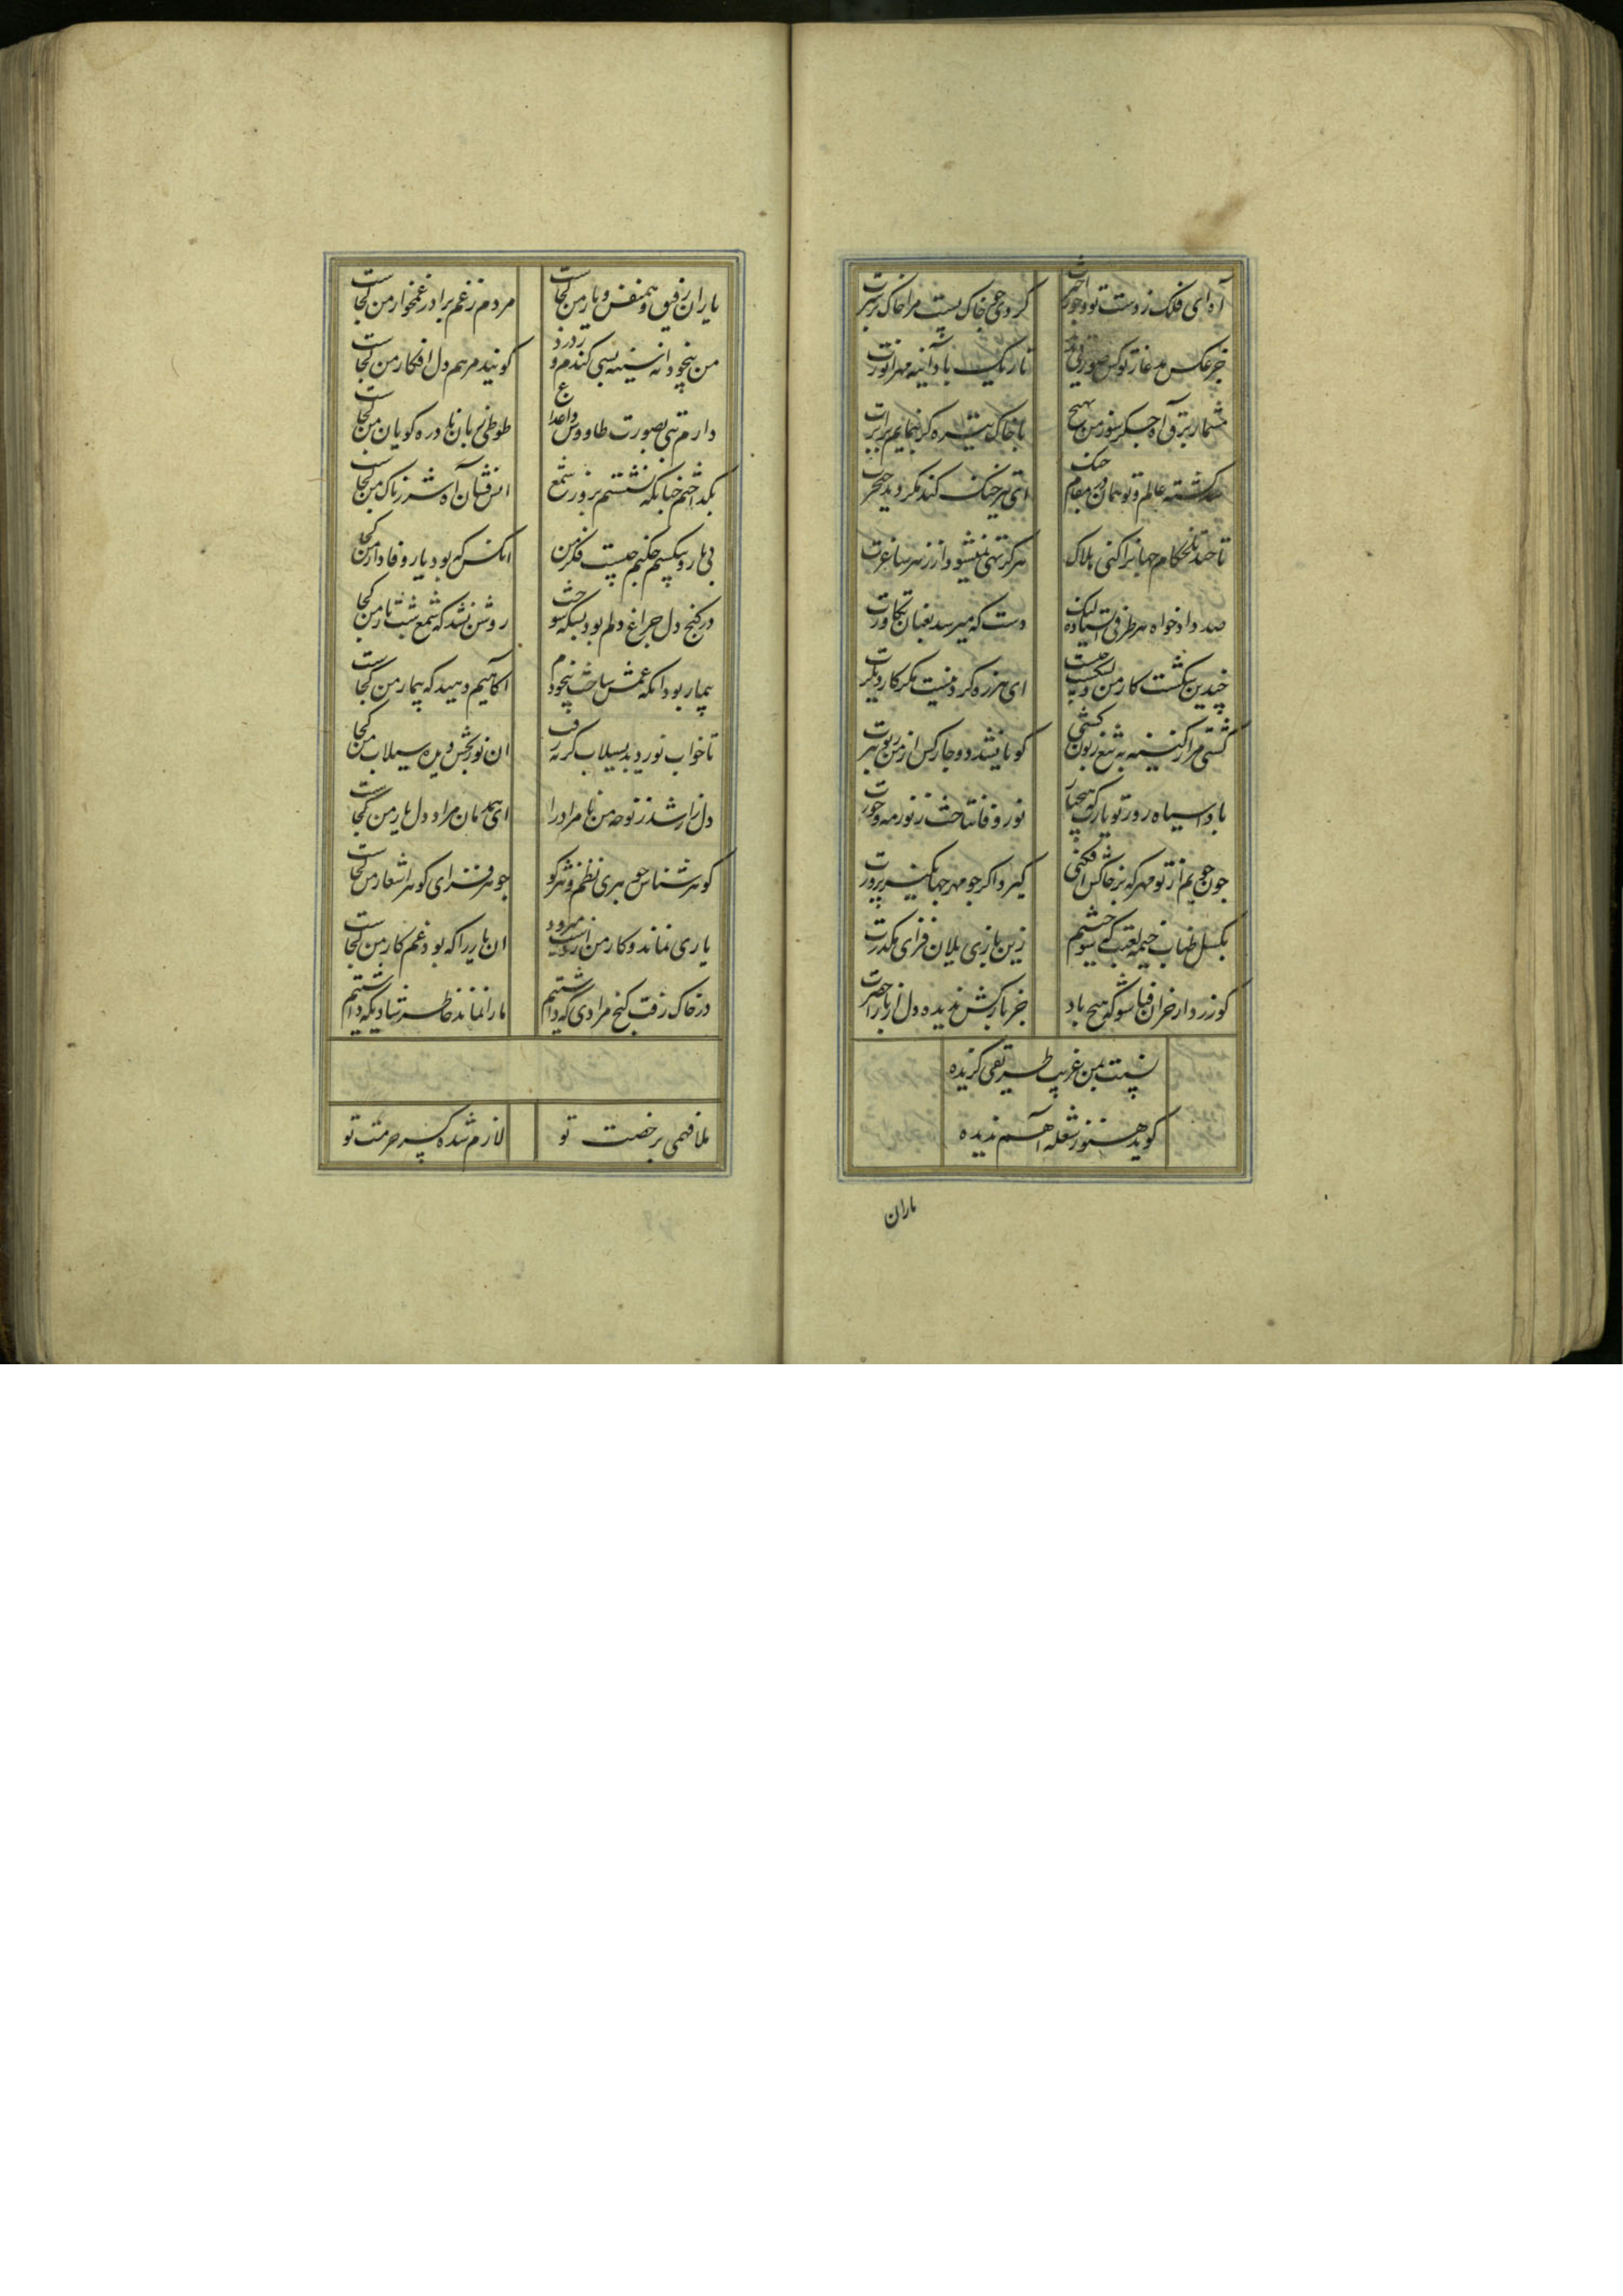 آه ای فلک ز دست تو و جور اخترت
کردی چو خاک پست مرا خاک بر سرت
جز عکس مدعا ز تو کس صورتی ندید
تاریک باد آینه مهر انورت
مشمار برق آه جگر سوز من بهیچ
با خاک تیره گر ننمایم برابرت
صد گشته عالم و تو همان در مقام جنگ
ای تیز جنگ کند نگردید خنجرت
تا چند تلخکام جهانرا کنی هلاک
هرگز تهی نمیشود از زهر ساغرت
صد دادخواه هر طرفی ایستاده لیک
دست که میرسد بعنان تکاورت
چندین شکست کار من دل شکسته چیست
ای هرزه گرد نیست مگر کار دیگرت
کشتی مرا ز کینه به تیغ زبون کشی
گویا نشد دوچار کس از من زبونترت
بادا سیاه روز تو یارب که همچنان
نور وفا نتافت ز نور مه و خورت
چون جویم از تو مهر که بر خاکش افکنی
گیرد اگر چو مهر جهان کینه پرورت
بگسل طناب خیمه لعبت که سوختیم
زین بازی بلا ن فزای مکدرت
کو زردار خزان فنا شو که هیچ باد
جز بار کش ندیده دل از باراخضرت
نسبت بمن غریب طریقی گزیده
گوید هنوز شعله آهم ندیده
یاران
یاران رفیق و همنفس و یار من کجاست
مردم ز غم برادر غمخوار من کجاست
من بیخودانه سینه بسی کندم و ز درد
گویید مرهم دل افکار من کجاست
دارم تنی بصورت طاووس داغ داغ
طوطی زبان نادره گویان من کجاست
بگداختم چنانکه نشستم بروز شمع
آتش فشان آه شرر ناک من کجاست
بی یار و بیکسم چکنم چیست فکر من
آنکس که بود یار وفادار من کجا
در کنج دل چراغ دلم بود بسکه سوخت
روشن نشد که شمع شب تار من کجا
بیمار بود آنکه غمش ساخت بیخودم
آگاهیم دهید که بیمار من کجاست
تا خواب نور دید بسیلاب گریه رفت
آن نوربخش دیده سیلاب من کجا
دل زار شد ز نوحه من نامراد را
ای همدمان مراد دل یار من کجاست
گوهر شناس جوهری نظم و نثر کو
جوهر فزای گوهر اشعار من کجاست
یاری نماند و کار من از دست میرود
آن یار را که بود غم کار من کجاست
در خاک رفت گنج مرادی که داشتیم
ما را نماند خاطر شادیکه داشتیم
ملا فهمی برخصت تو
لازم شده کسر حرمت تو